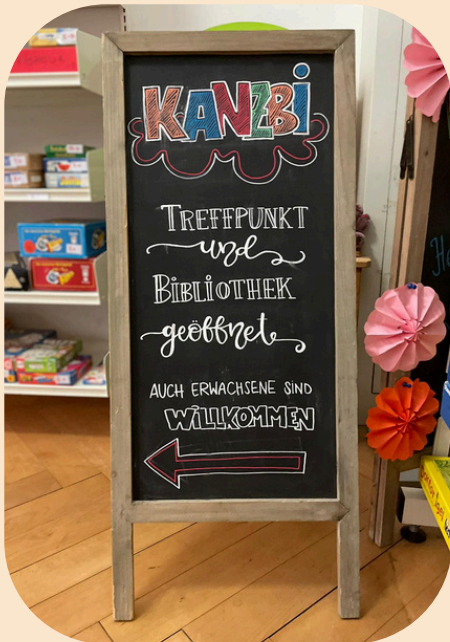 KANZBi
TREFFPUNKT
und
BiBLiOTHEK
geöffnet
AUCH ERWACHSENE SIND
WiLLKOMMEN